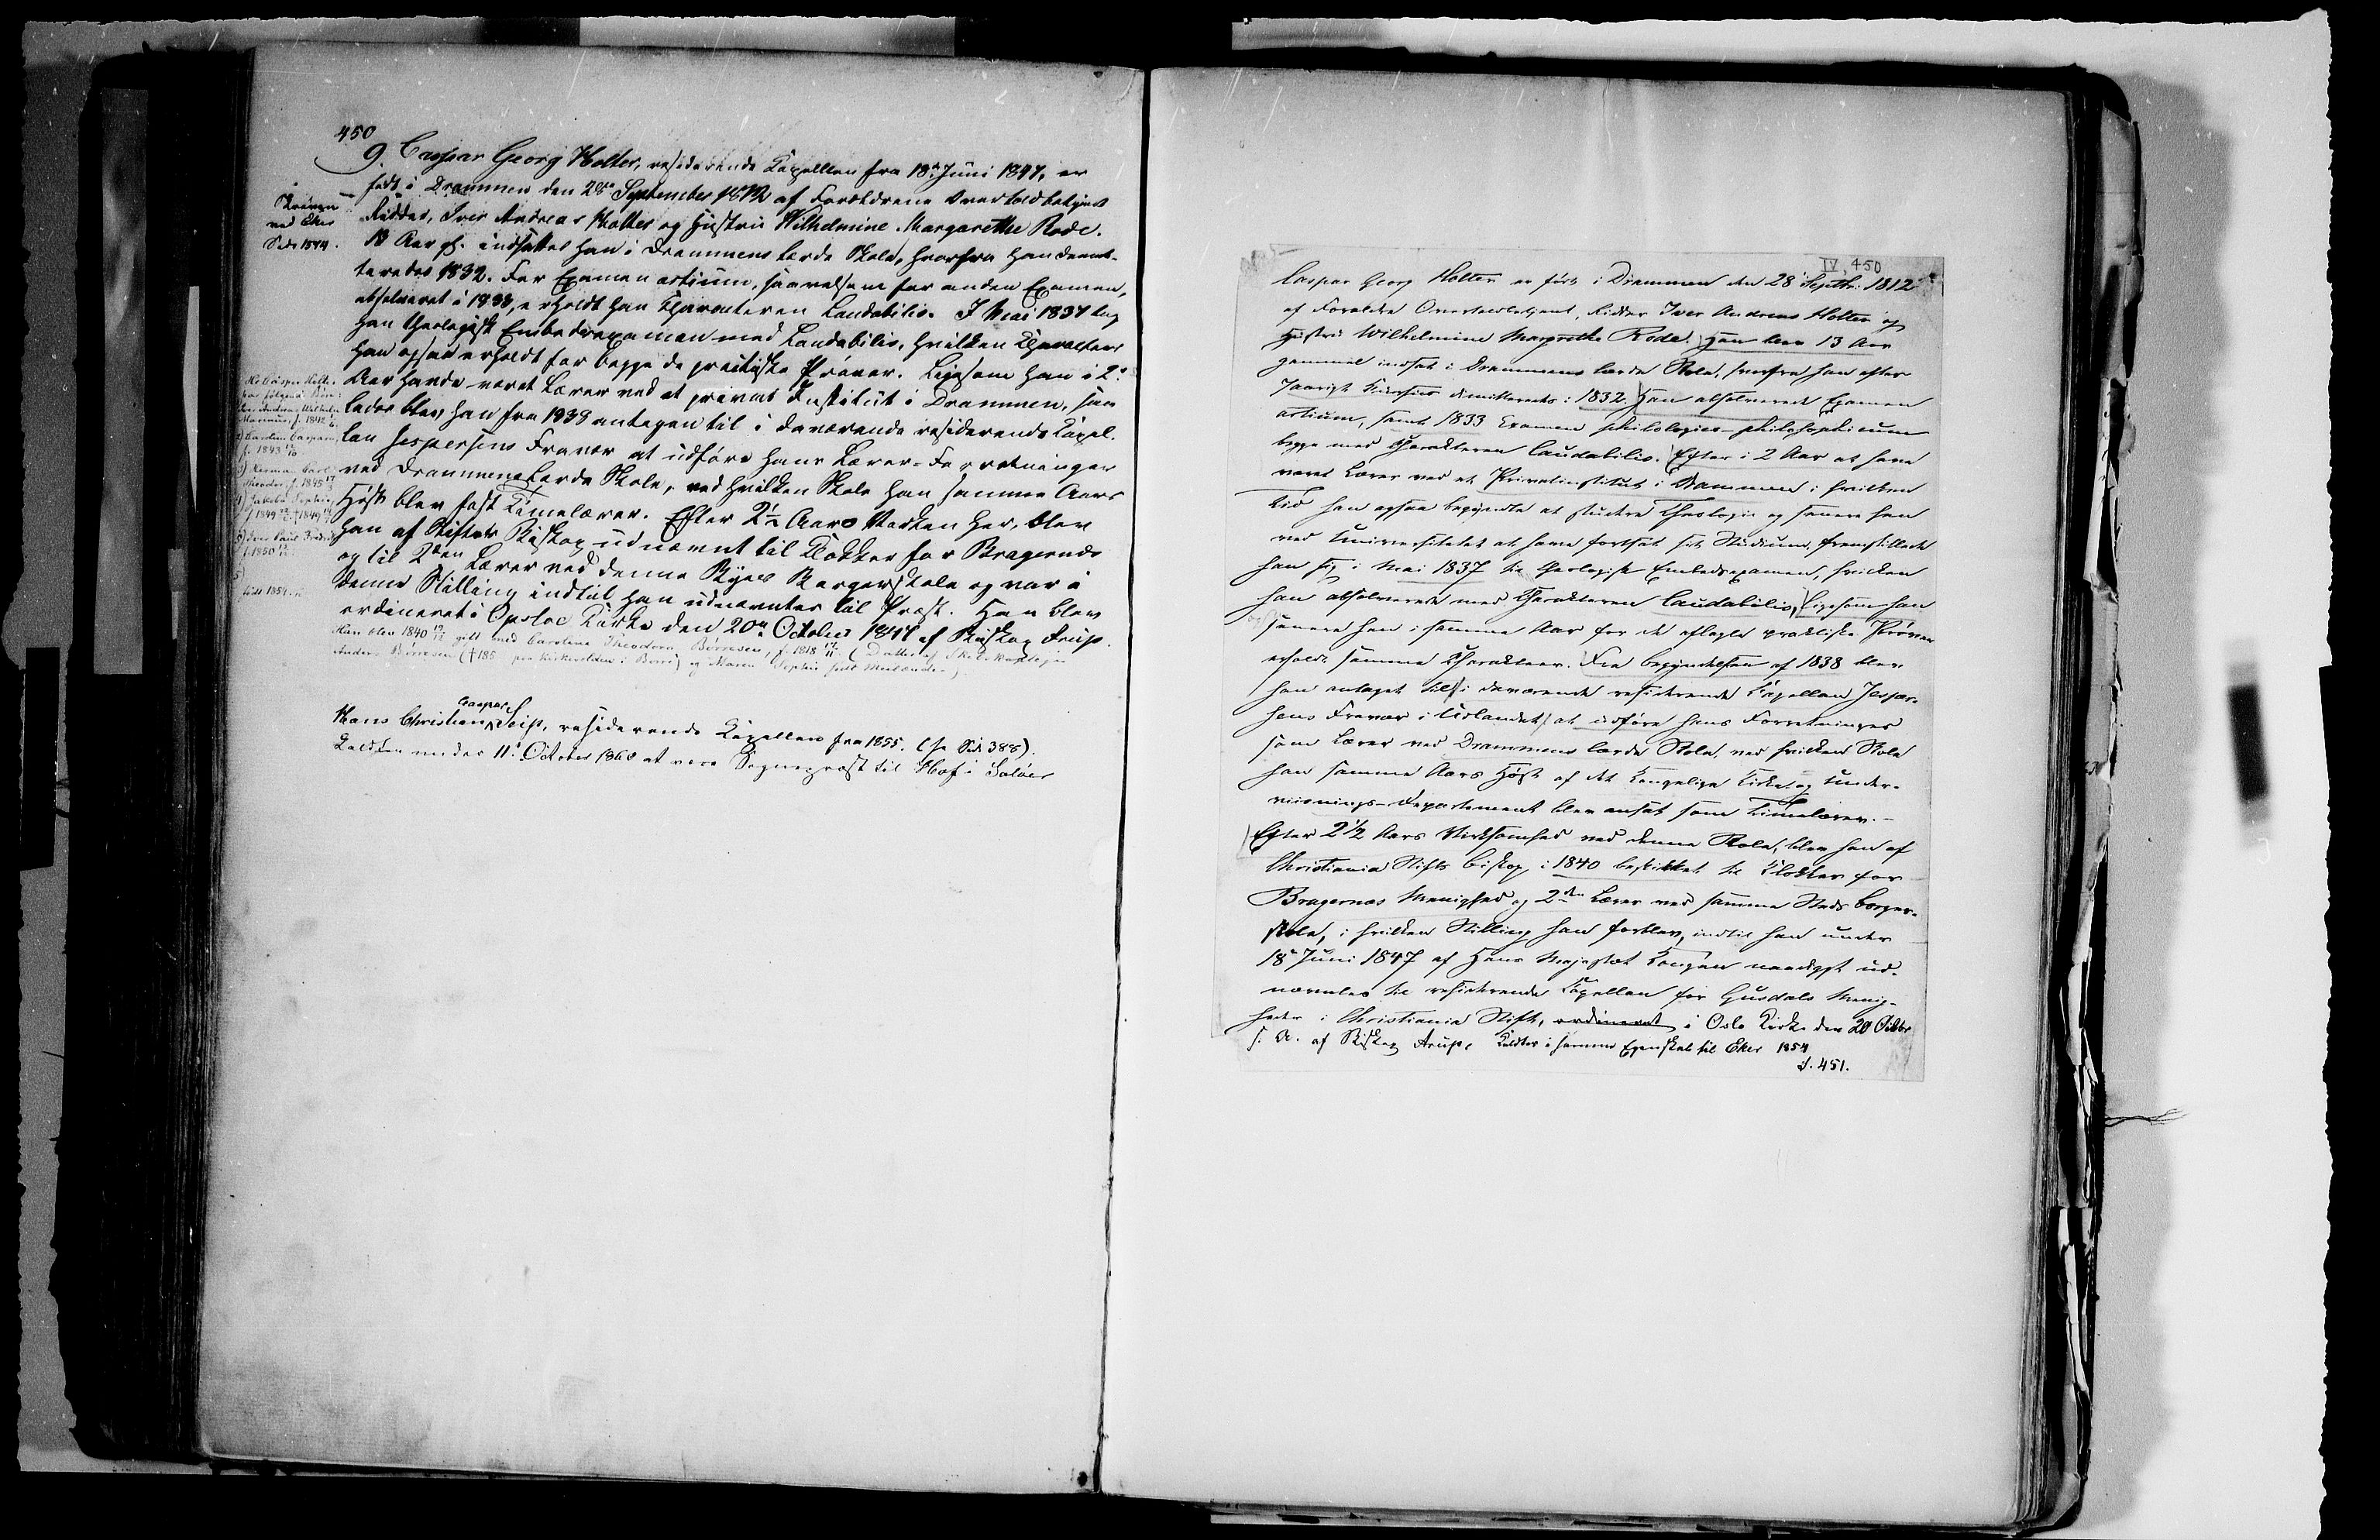 450
9. Caspar Georg Holter, residerende Kapellan fra 18de Juni 1847, er
født i Drammen den 28de September 1812 af Forældrene Overtoldbetjent
Ridder, Iver Andreas Holter og Hustru Wilhelmine Margarethe Rode.
13 Aar gl. indsattes han i Drammens lærde Skole, hvorfra han demit-
teredes 1832. For Examen artium, saavelsom for anden Examen,
absolveret i 1833, erholdt han Charakteren Laudabilis. I Mai 1837 tog
han theologisk Embedsexamen med Laudabilis, hvilken Charakteer
han ogsaa erholdt for begge de practiske Prøver. Ligesom han i 2
Aar havde været Lærer ved et privat Institut i Drammen, saa
ledes blev han fra 1838 antagen til i daværende residerende Capel-
lan Jespersens Fravær at udføre hans Lærer-Forretninger
ved Drammens lærde Skole, ved hvilken Skole han samme Aars
Høst blev fast Timelærer. Efter 2½ Aars Værken her, blev
han af Stiftets Biskop udnævnt til Klokker for Bragernæs
og til 2den Lærer ved denne Byes Borgerskole og var i
denne Stilling indtil han udnævntes til Præst. Han blev
ordineret i Opsloe Kirke den 20de October 1847 af Biskop Arup.
Han blev 1840 gift med Caroline Theodora Børresen, f. 1818 (Datter af
Anders Børresen († 185 paa Kirkevolden i Borre) og Maren Sophie født
Skriven
ved Eker
Side 1844.
har følgende Børn:
f. 1843
f. 1845
f. 1849 † 1849
f. 1850
Hans Christian Caspar Seip, residerende Kapellan fra 1855. (se Side 388).
Kaldtes under 11te October 1860 at være Sogneprest til Hof i Soløer
IV, 450
Caspar Georg Holter er født i Drammen den 28de Septbr. 1812
af Forældre Overtoldbetjent, Ridder Iver Andreas Holter og
Hustru Wilhelmine Margrethe Rode. Han blev 13 Aar
gammel indsat i Drammens lærde Skole, hvorfra han efter
7aarigt Cursus dimitteredes i 1832. Han absolverede Examen
artium, samt 1833 Examen philologico-philosophicum
begge med Charakteren laudabilis. Efter i 2 Aar at have
været Lærer ved et Privatinstitut i Drammen i hvilken
Tid han ogsaa begyndte at studere Theologie og senere hen
ved Universitetet at have fortsat sit Studium, fremstillede
han sig i Mai 1837 til theologisk Embedsexamen, hvilken
han absolverede med Charakteren laudabilis, ligesom han
og senere hen i samme Aar for de aflagte praktiske Prøver
erholdt samme Charakteer. Fra Begyndelsen af 1838 blev
han antaget til i daværende residerende Capellan Jesper-
sens Fravær i Udlandet at udføre hans Forretninger
som Lærer ved Drammens lærde Skole, ved hvilken Skole
han samme Aars Høst af det kongelige Kirke og Under-
viisnings-Departement blev ansat som Timelærer.-
Efter 2½ Aars Virksomhed ved denne Skole, blev han af
Christiania Stifts Biskop i 1840 beskikket til Klokker for
Bragernæs Menighed og 2den Lærer ved samme Steds Borger-
skole, i hvilken Stilling han forblev, indtil han under
18de Juni 1847 af Hans Majestæt Kongen naadigst ud-
nævntes til residerende Capellan for Gusdals Menig-
heder i Christiania Stift, ordineret i Oslo Kirke den 20 Octbr
s. A. af Biskop Arup, Kaldtes i samme Egenskab til Eker 1854
S. 451.